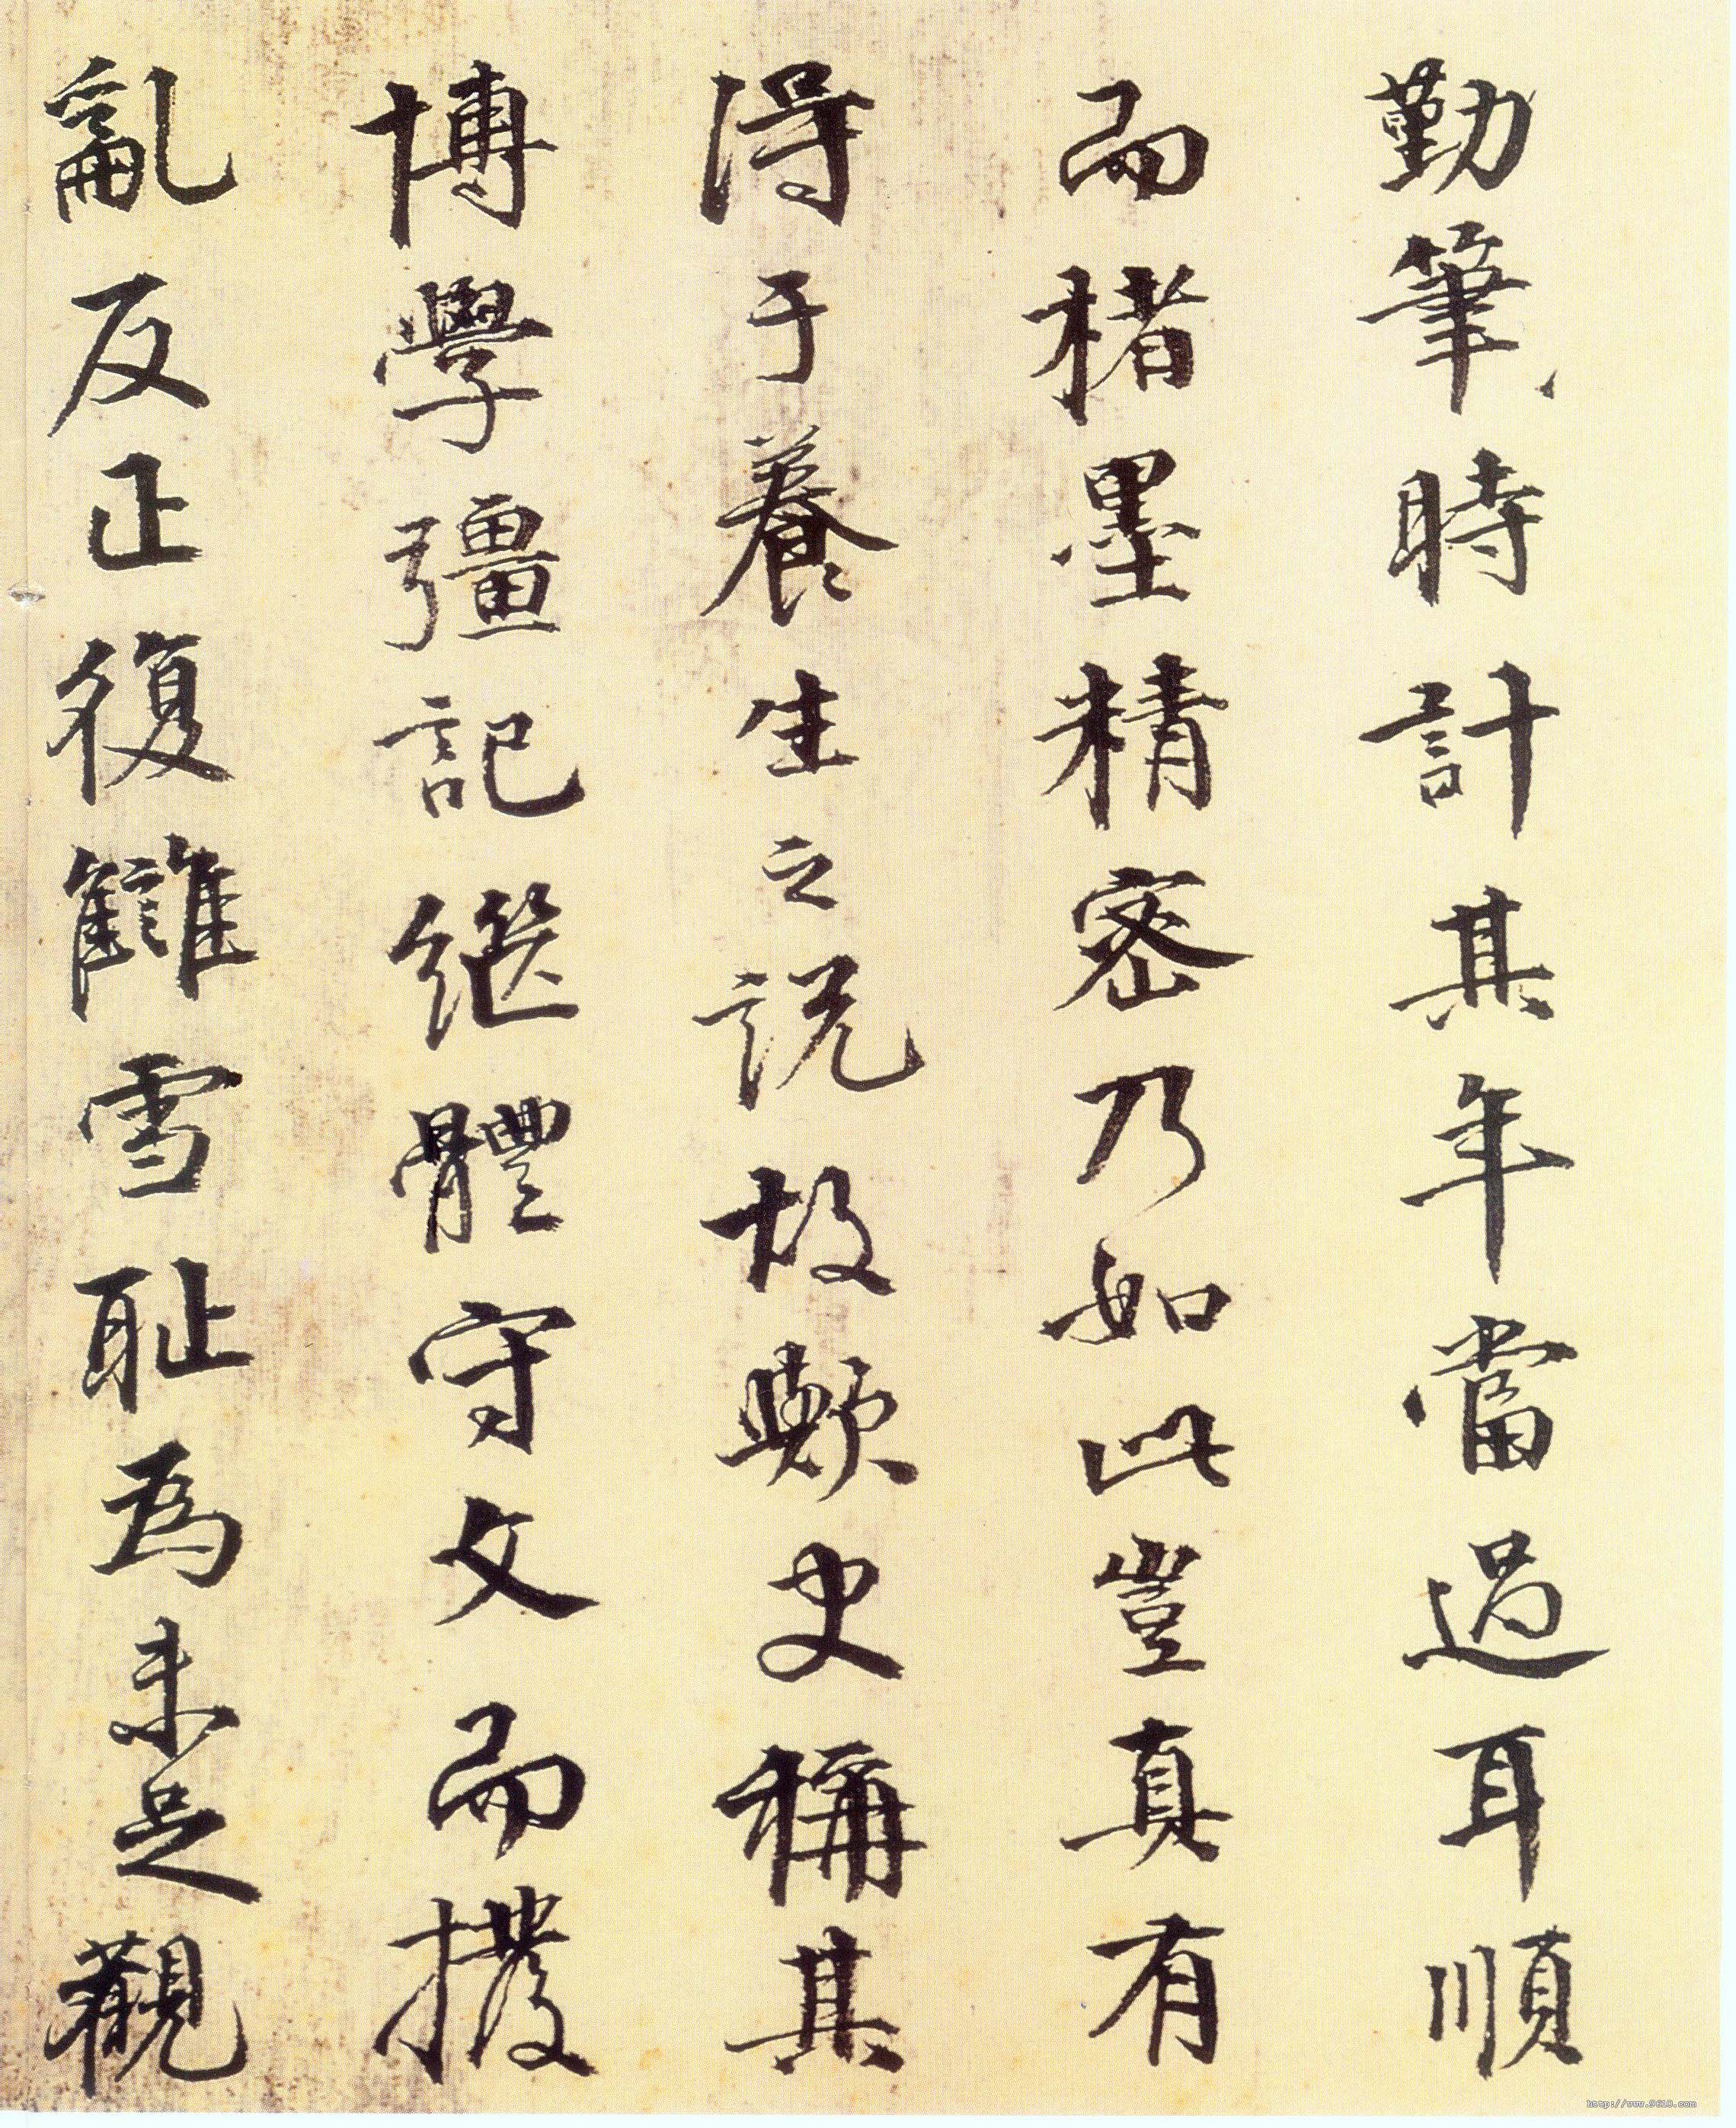 勤筆時計其年當過耳順
而楮墨精密乃如此豈真有
得于養生之说故歟史稱其
博學彊記繼體守文而撥
亂反正復讎雪耻為未足觀
http://www.9610.com